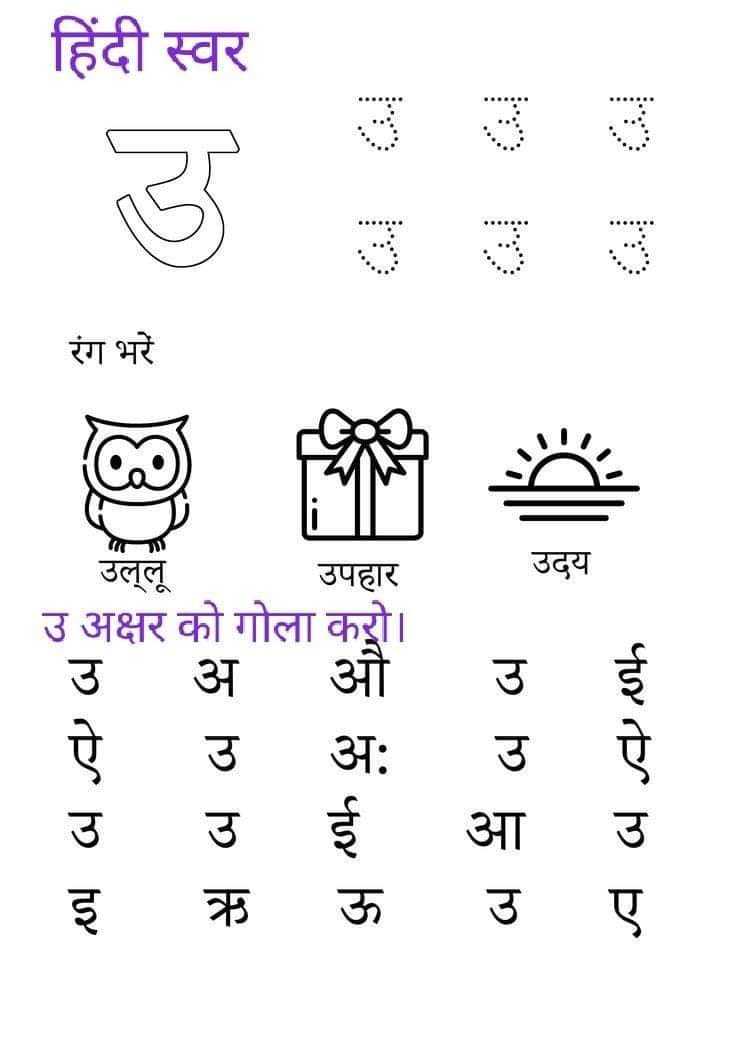 हिंदी स्वर
उ उ उ उ
उ उ उ
रंग भरें
उल्‌लू उपहार उदय
उ अक्षर को गोला करो।
उ अ औ उ ई
ऐ उ अ: उ ऐ
उ उ ई आ उ
इ ऋ ऊ उ ए